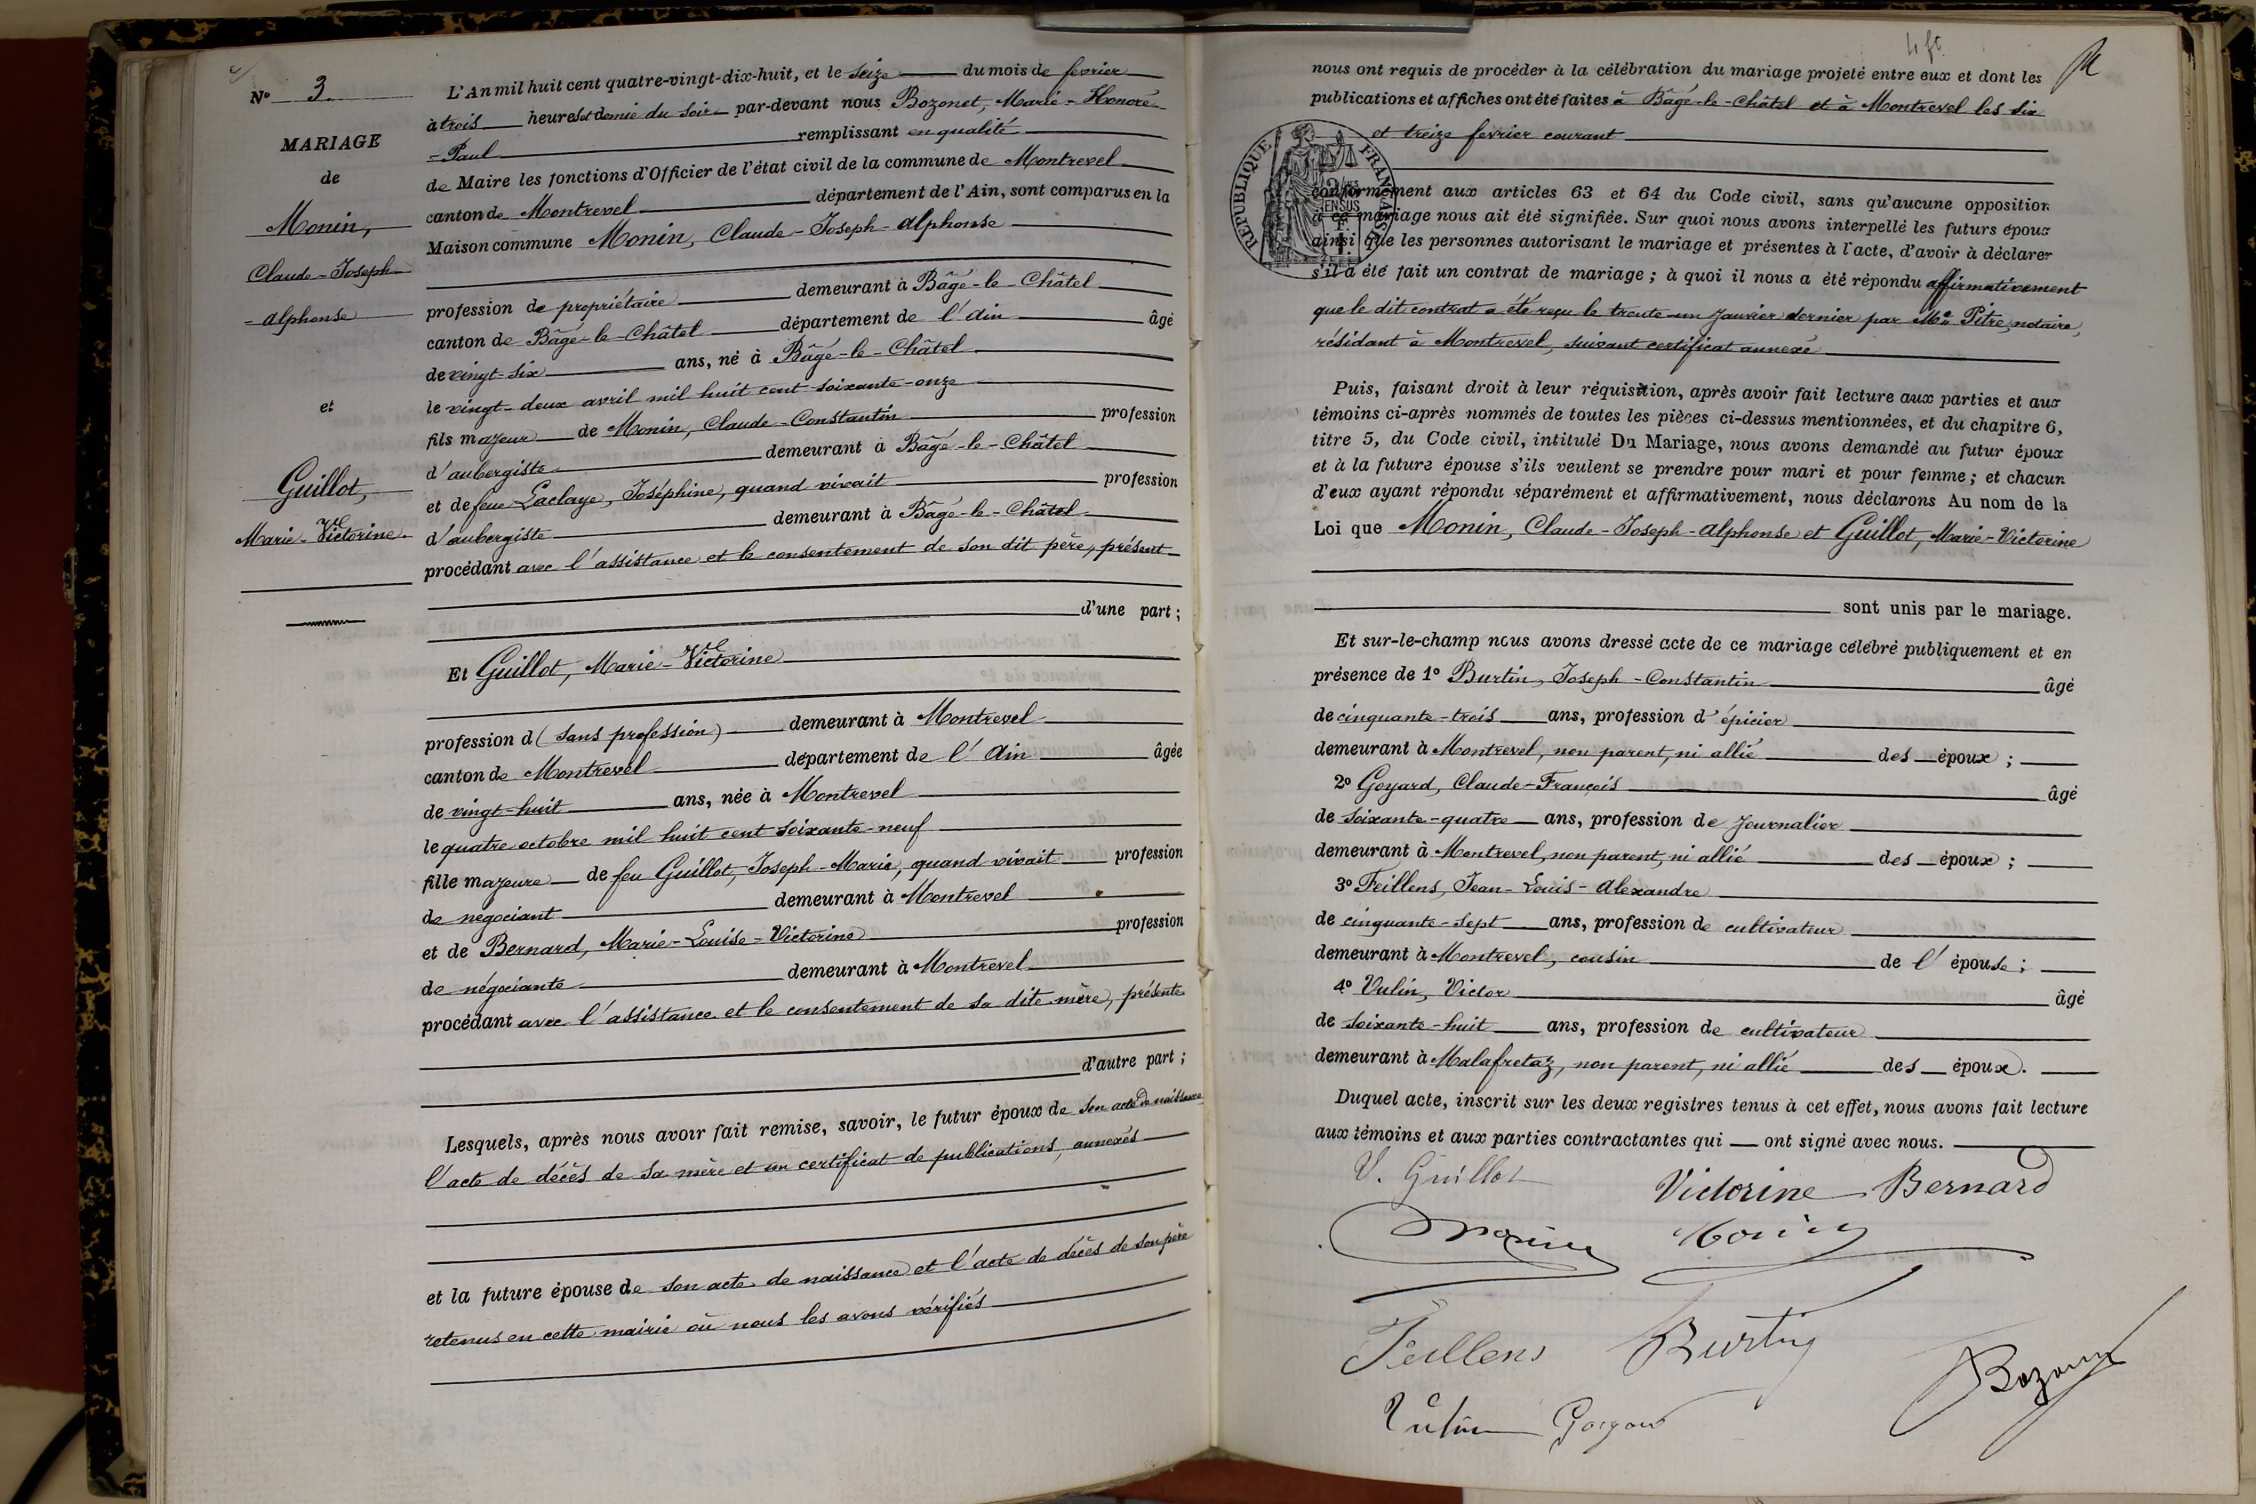 N° 3.
MARIAGE
de
Monin,
Claude-Joseph
-Alphonse
et
Guillot,
Marie-Victorine.
L'An mil huit cent quatre-vingt-dix-huit, et le seize du mois de fevrier
à trois heures et demie du soir par-devant nous Bozonet, Marie-Honoré-
-Paul remplissant en qualité
de Maire les fonctions d'Officier de l'état civil de la commune de Montrevel
canton de Montrevel département de l'Ain, sont comparus en la
Maison commune Monin, Claude-Joseph-Alphonse
profession de propriétaire demeurant à Bâgé-le-Châtel
canton de Bâgé-le-Châtel département de l'Ain âgé
de vingt-six ans, né à Bâgé-le-Châtel
le vingt-deux avril mil huit cent soixante-onze
fils majeur de Monin, Claude-Constantin profession
d'aubergiste demeurant à Bâgé-le-Châtel
et de feue Laclaye, Joséphine, quand vivait profession
d'aubergiste demeurant à Bâgé-le-Châtel
procédant avec l'assistance et le consentement de son dit père, présent
d'une part;
Et Guillot, Marie-Victorine
profession d (sans profession) demeurant à Montrevel
canton de Montrevel département de l'Ain âgée
de vingt-huit ans, née à Montrevel
le quatre octobre mil huit cent soixante-neuf
fille majeure de feu Guillot, Joseph-Marie, quand vivait profession
de négociant demeurant à Montrevel
et de Bernard, Marie-Louise-Victorine profession
de négociante demeurant à Montrevel
procédant avec l'assistance et le consentement de sa dite mère, présente
d'autre part;
Lesquels, après nous avoir fait remise, savoir, le futur époux de son acte de naissance
l'acte de décès de sa mère et un certificat de publications, annexés
et la future épouse de son acte de naissance et l'acte de décès de son père
retenus en cette mairie où nous les avons vérifiés
nous ont requis de procéder à la célébration du mariage projeté entre eux et dont les
publications et affiches ont été faites à Bâgé-le-Châtel et à Montrevel les six
et treize fevrier courant
RÉPUBLIQUE FRANÇAISE
conformément aux articles 63 et 64 du Code civil, sans qu'aucune opposition
à ce mariage nous ait été signifiée. Sur quoi nous avons interpellé les futurs époux
ainsi que les personnes autorisant le mariage et présentes à l'acte, d'avoir à déclarer
s'il a été fait un contrat de mariage; à quoi il nous a été répondu affirmativement
que le dit contrat a été reçu le trente-un janvier dernier par Me Pitre, notaire,
résidant à Montrevel, suivant certificat annexé
Puis, faisant droit à leur réquisition, après avoir fait lecture aux parties et aux
témoins ci-après nommés de toutes les pièces ci-dessus mentionnées, et du chapitre 6,
titre 5, du Code civil, intitulé Du Mariage, nous avons demandé au futur époux
et à la future épouse s'ils veulent se prendre pour mari et pour femme; et chacun
d'eux ayant répondu séparément et affirmativement, nous déclarons Au nom de la
Loi que Monin, Claude-Joseph-Alphonse et Guillot, Marie-Victorine
sont unis par le mariage.
Et sur-le-champ nous avons dressé acte de ce mariage célébré publiquement et en
présence de 1° Burtin, Joseph-Constantin âgé
de cinquante-trois ans, profession d'épicier
demeurant à Montrevel, non parent, ni allié des époux;
2° Goyard, Claude-François âgé
de soixante-quatre ans, profession de journalier
demeurant à Montrevel, non parent, ni allié des époux;
3° Feillens, Jean-Louis-Alexandre
de cinquante-sept ans, profession de cultivateur
demeurant à Montrevel, cousin de l'épouse;
4° Vulin, Victor âgé
de soixante-huit ans, profession de cultivateur
demeurant à Malafretaz, non parent, ni allié des époux.
Duquel acte, inscrit sur les deux registres tenus à cet effet, nous avons fait lecture
aux témoins et aux parties contractantes qui ont signé avec nous.
V. Guillot Victorine Bernard
Monin Monin
Feillens Burtin
Bozonet
Vulin Goyard